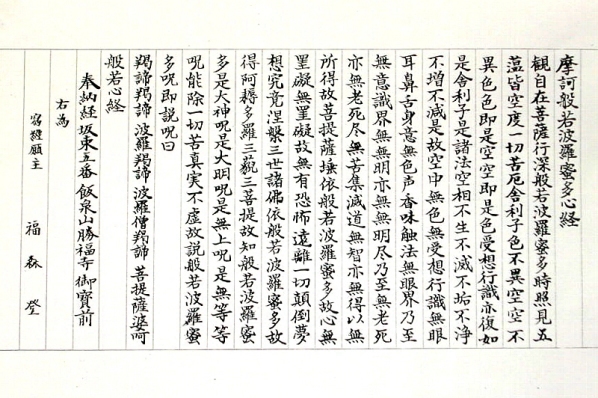 摩訶般若波羅蜜多心経
観自在菩薩行深般若波羅蜜多時照見五
蘊皆空度一切苦厄舎利子色不異空空不
異色色即是空空即是色受想行識亦復如
是舎利子是諸法空相不生不滅不垢不浄
不増不減是故空中無色無受想行識無眼
耳鼻舌身意無色声香味触法無眼界乃至
無意識界無無明亦無無明尽乃至無老死
亦無老死尽無苦集滅道無智亦無得以無
所得故菩提薩埵依般若波羅蜜多故心無
罣礙無罣礙故無有恐怖遠離一切顛倒夢
想究竟涅槃三世諸佛依般若波羅蜜多故
得阿耨多羅三藐三菩提故知般若波羅蜜
多是大神呪是大明呪是無上呪是無等等
呪能除一切苦真実不虚故説般若波羅蜜
多呪即説呪曰
羯諦羯諦 波羅羯諦 波羅僧羯諦 菩提薩婆呵
般若心経
奉納経 坂東五番 飯泉山勝福寺 御寶前
右為
寫經願主 福森登